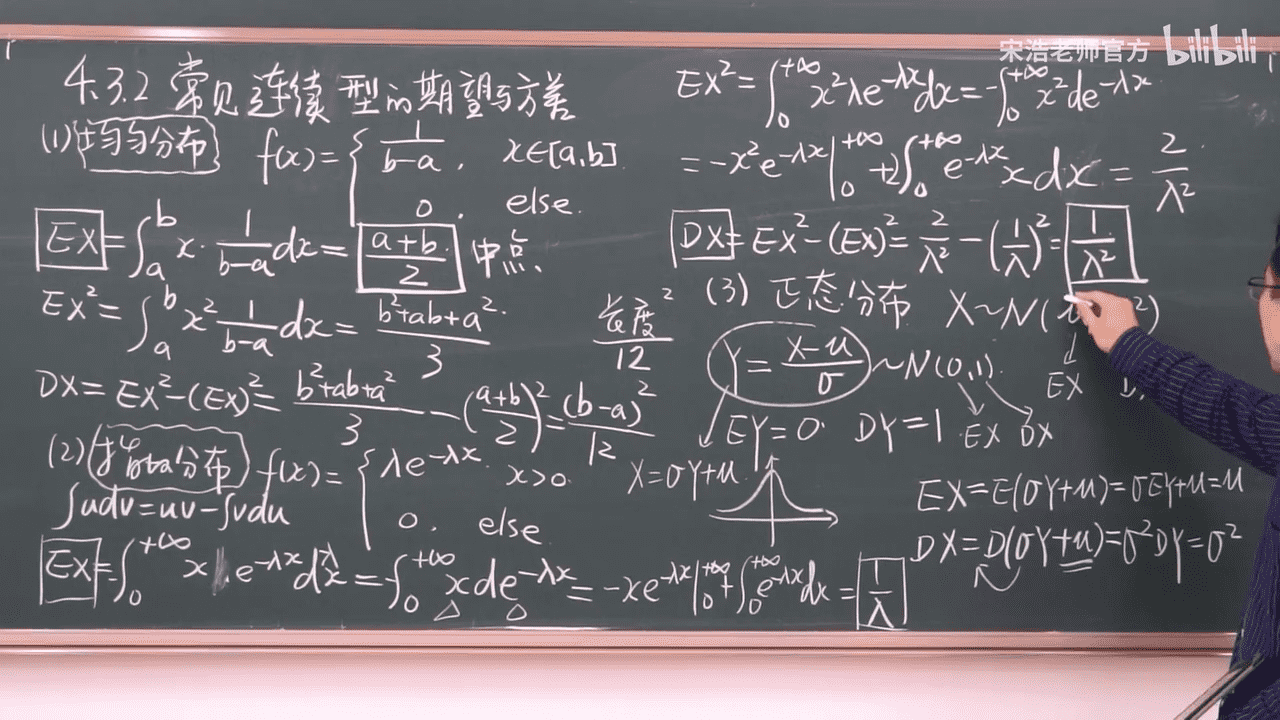 宋浩老师官方 bilibili
4.3.2 常见连续型的期望与方差
(1) 均匀分布 f(x)={ 1/(b-a), x∈[a,b]
0, else.
EX=∫_a^b x·1/(b-a)dx=(a+b)/2 中点.
EX²=∫_a^b x² 1/(b-a)dx=(b²+ab+a²)/3
长度²/12
DX=EX²-(EX)²=(b²+ab+a²)/3-((a+b)/2)²=(b-a)²/12
(2) 分布 f(x)={ λe^{-λx}. x>0.
0. else
∫udv=uv-∫vdu
EX=∫_0^{+∞} x e^{-λx}dx=-∫_0^{+∞} xde^{-λx}=-xe^{-λx}|_0^{+∞}+∫_0^{+∞} e^{-λx}dx=1/λ
EX²=∫_0^{+∞} x²λe^{-λx}dx=-∫_0^{+∞} x²de^{-λx}
=-x²e^{-λx}|_0^{+∞}+2∫_0^{+∞} e^{-λx}xdx=2/λ²
DX=EX²-(EX)²=2/λ²-(1/λ)²=1/λ²
(3) 正态分布 X~N( ²)
Y=(X-μ)/σ ~N(0,1).
EX
EY=0. DY=1 EX DX
X=σY+μ
EX=E(σY+μ)=σEY+μ=μ
DX=D(σY+μ)=σ²DY=σ²